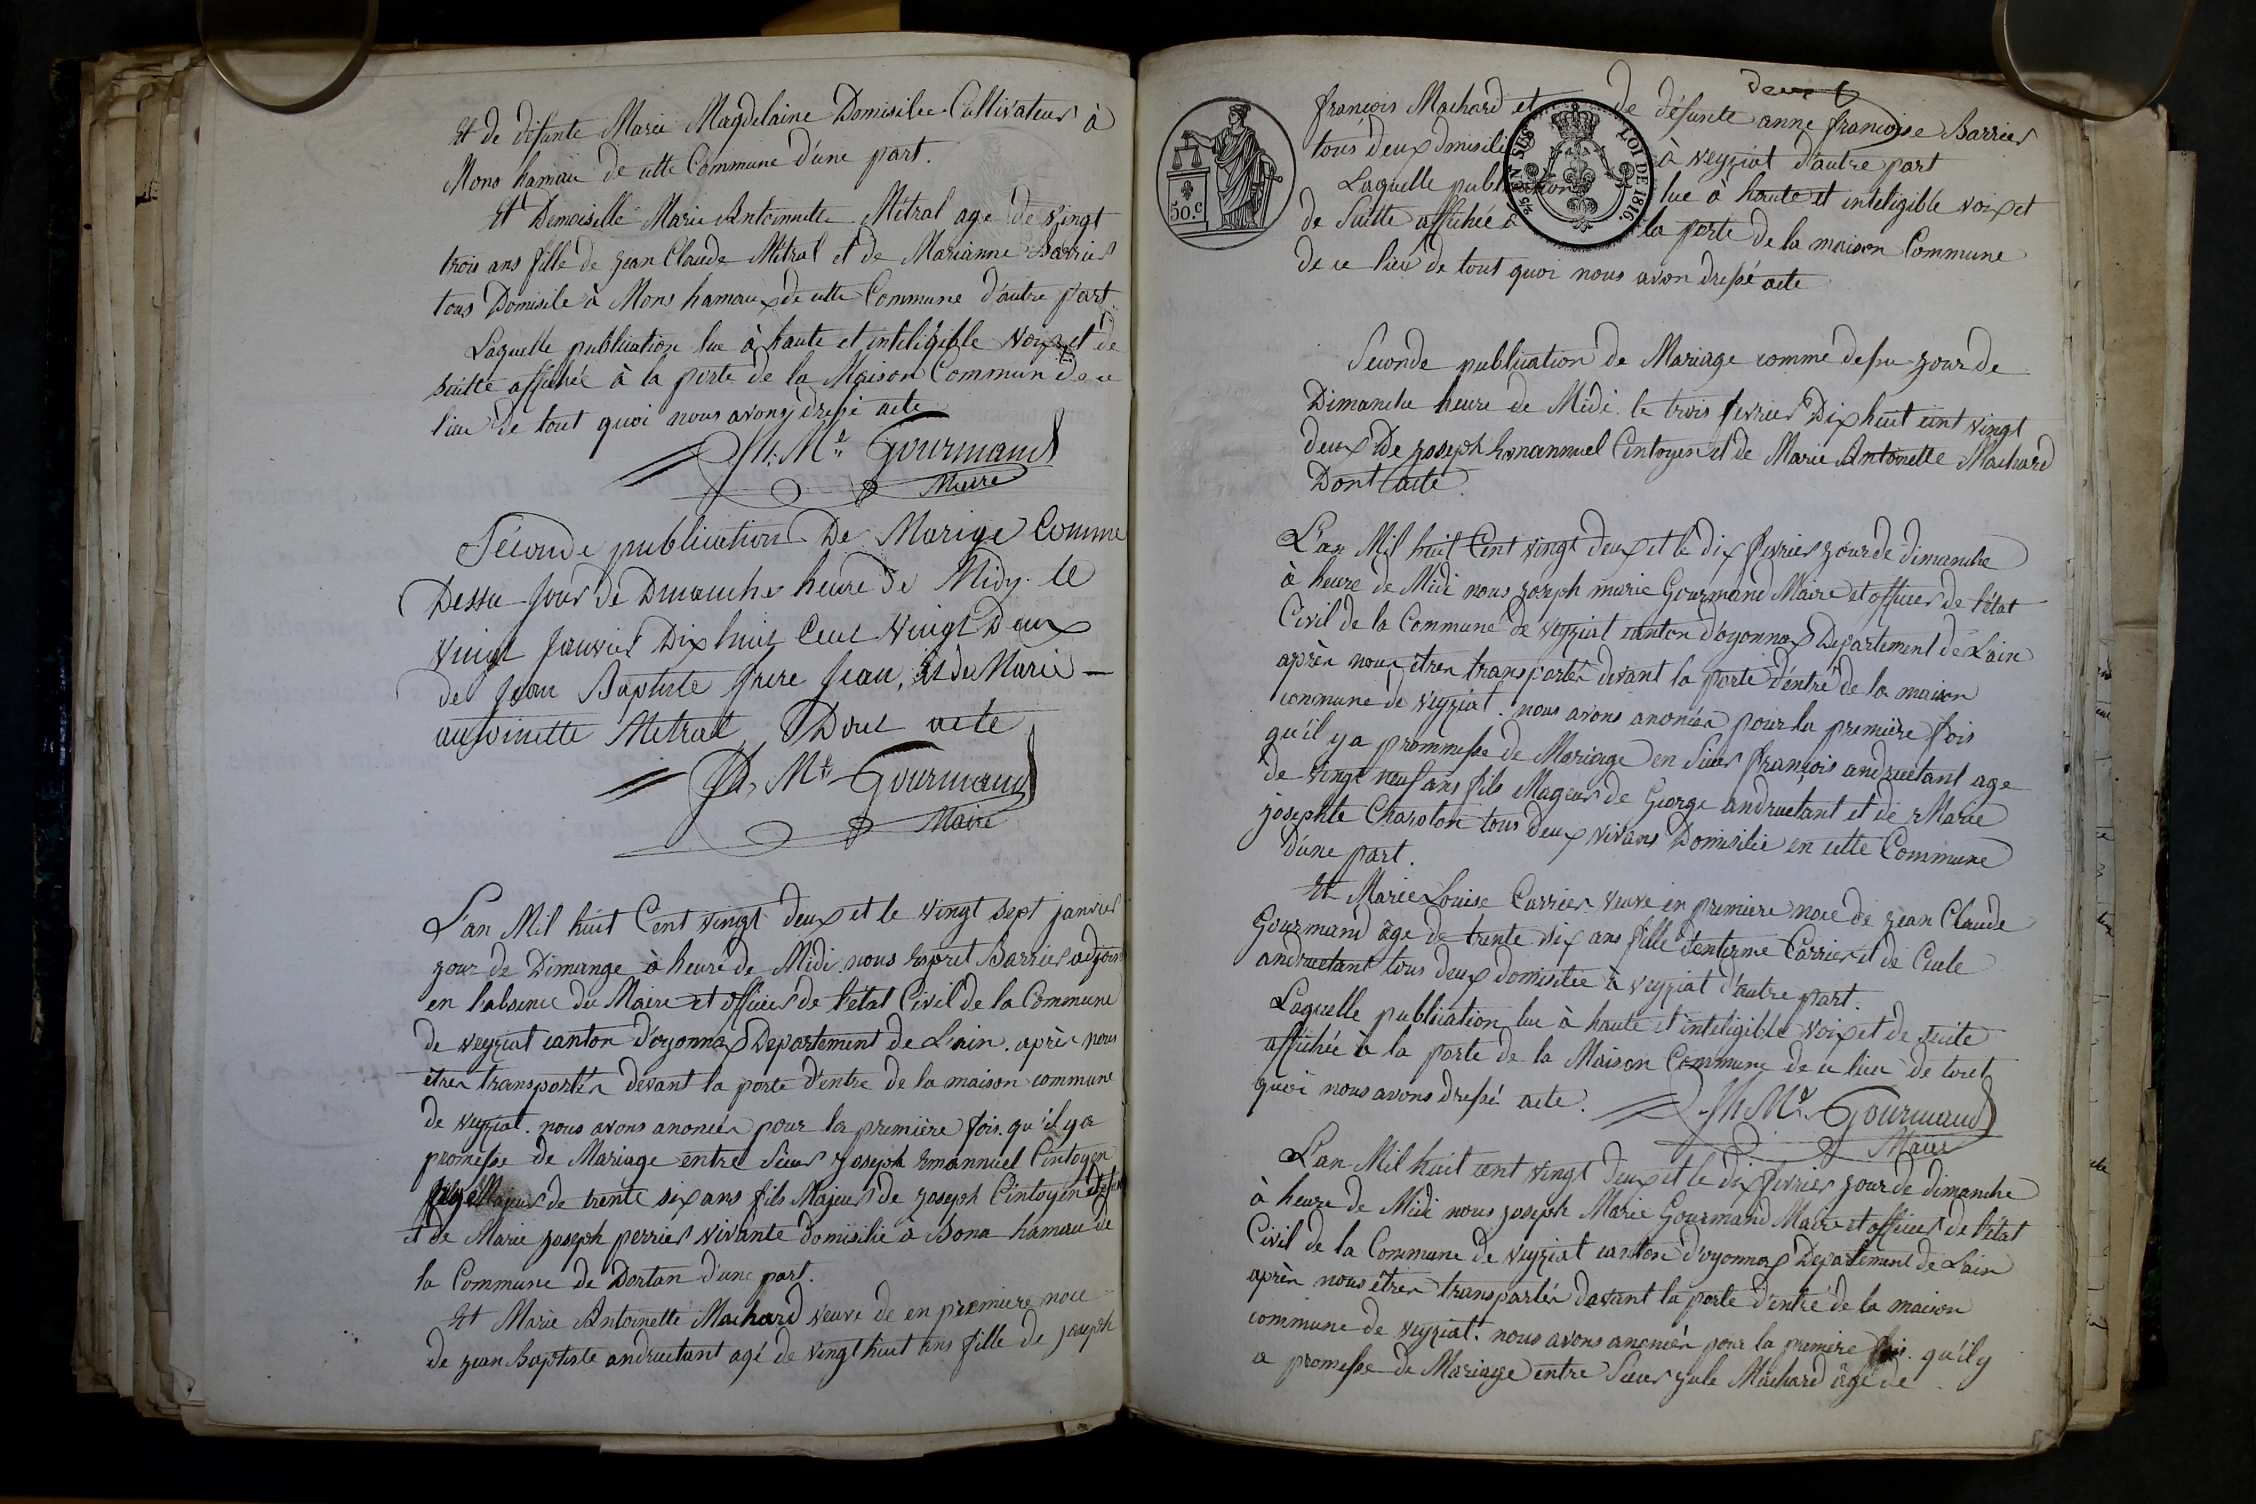 Et de defunte Marie Magdelaine Domisilee Cultivateur à
Mons hamau de cette Commune d'une part.
Et Demoiselle Marie Antoinnette Métral age de vingt
trois ans fille de jean Claude Métral et de Marianne Barrier
tous Domisile à Mons hamaux de cette Commune d'autre part
Laquelle publication lue à haute et inteligible voix et de
suitte affichée à la porte de la Maison Commun de ce
lieu de tout quoi nous avons dressé acte
Jh. Me Gourmand
Maire
Séconde publication De Marige Comme
Dessu jour de Dimanche heure de Midy. le
vingt janvier Dix huit Cent vingt Deux
de Jean Baptiste frere jean, Et de Marie
antoinette Metral Dont acte
Jh. Me Gourmand
Maire
L'an Mil huit Cent vingt deux et le vingt sept janvier
jour de Dimange à heure de Midi nous Espret Barrier adjoint
en l'absence du Maire et officier de l'état Civil de la Commune
de veyziat canton d'oyonnax Departement de L'ain. après nous
être transportés devant la porte d'entre de la maison commune
de veyziat. nous avons anoncés pour la première fois. qu'il y a
promesse de Mariage entre Sieur joseph Emannuel Cintoyen
Majeur de trente six ans fils Majeur de joseph Cintoyen
et de Marie joseph perrier vivante domisilié à Bona hamau de
la Commune de Dortan d'une part.
Et Marie Antoinette Machard veuve de en premiere noce
de jean Baptiste andruetant agé de vingt huit ans fille de joseph
deux
françois Machard et de défunte anne françoise Barrier
tous deux domisilie à veyziat d'autre part
Laquelle publication lue à haute et inteligible voix et
de suitte affichée à la porte de la maison Commune
de ce lieu de tout quoi nous avon dressé acte
50.c
EN SUS
LOI DE 1816.
Seconde publication de Mariage comme dessu jour de
Dimanche heure de Midi le trois fevrier Dix huit cent vingt
deux De joseph hemannuel Cintoyen et de Marie Antonette Machard
Dont acte.
L'an Mil huit Cent vingt deux et le dix fevrier jour de dimanche
à heure de Midi nous joseph marie Gourmand Maire et officier de l'état
Civil de la Commune de veyziat canton d'oyonnax Departement de L'ain
après nous être transportés devant la porte d'entré de la maison
commune de veyziat. nous avons anoncés pour la première fois
qu'il y a prommesse de Mariage en Sieur françois andruetant age
de vingt neuf ans fils Mageur de George andruetant et de Marie
josephte Charoton tous deux vivans Domisilie en cette Commune
d'une part.
Et Marie Louise Carrier veuve en premiere noce de jean Claude
Gourmand âge de trente six ans fille d'enterme Carrier et de Cecile
andruetant tous deux domisilee à veyziat d'autre part.
Laquelle publication lue à haute et inteligible voix et de suite
affichée à la porte de la Maison Commune de ce lieu de tout
quoi nous avons dressé acte.
Jh Me Gourmand
Maire
L'an Mil huit cent vingt deux et le dix fevrier jour de dimanche
à heure de Midi nous joseph Marie Gourmand Maire et officier de l'état
Civil de la Commune de veyziat canton d'oyonnax Departement de L'ain
après nous être transportés devant la porte d'entré de la maison
commune de veyziat. nous avons anoncés pour la premiere fois. qu'il y
a promesse de Mariage entre Sieur jule Machard âgé de